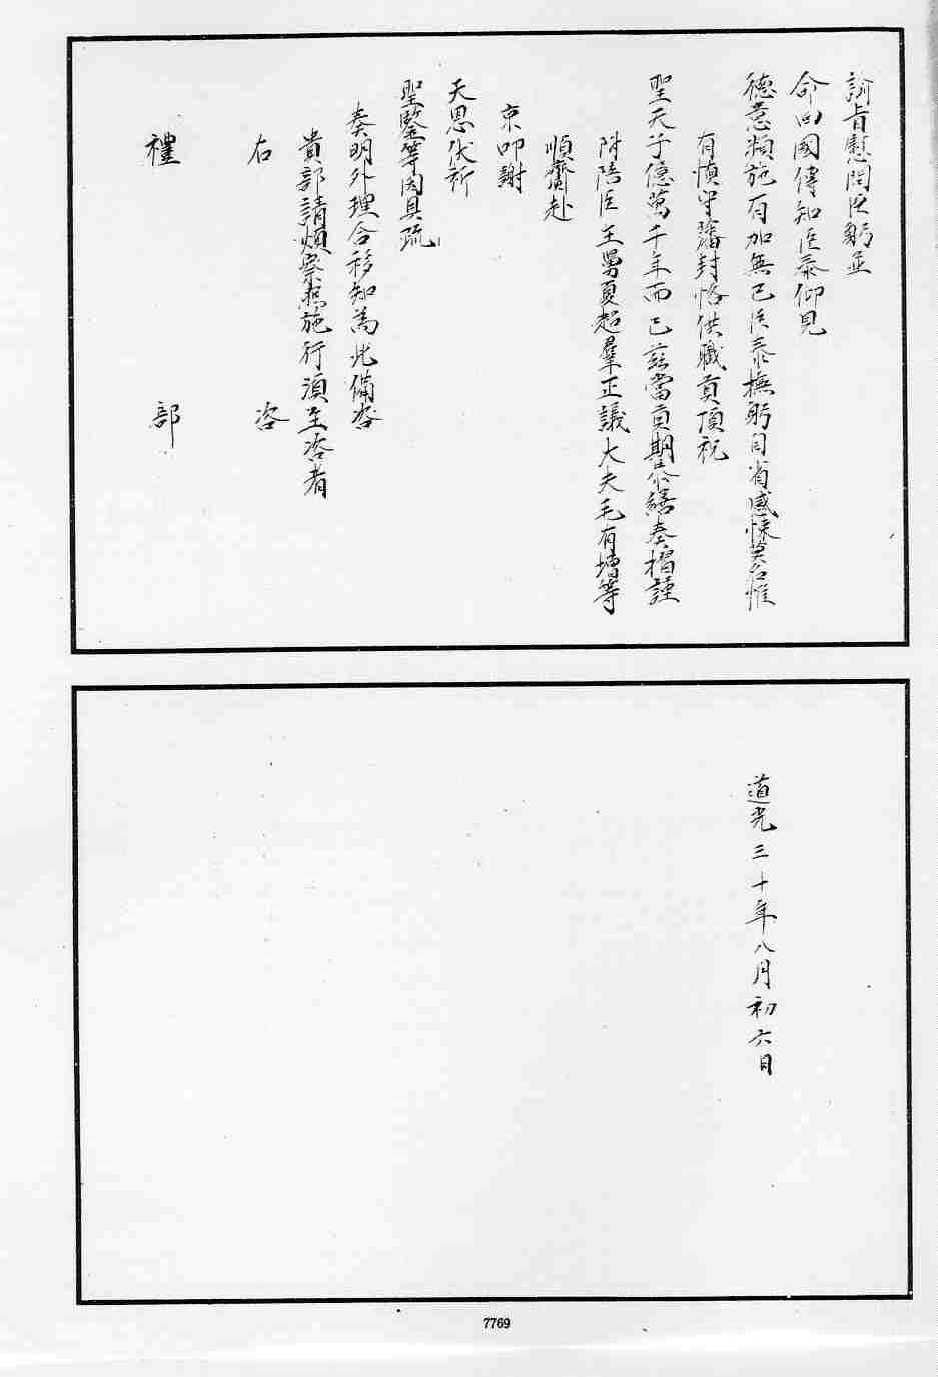 諭旨慰問臣躬並
命回國傳知臣泰仰見
德意頻施有加無已臣泰撫躬自省感悚莫名惟
有慎守藩封恪供職貢頂祝
聖天子億萬千年而已茲當貢期恭繕奏摺謹
附陪臣王舅夏超羣正議大夫毛有增等
順齎赴
京叩謝
天恩伏祈
聖鑒等因具疏
奏明外理合移知為此備咨
貴部請煩察照施行須至咨者
右 咨
禮 部
道光三十年八月初六日
7769